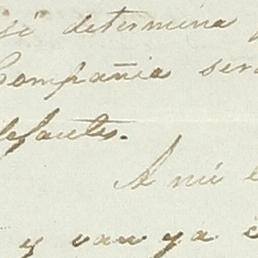 si determina
Compañia ser
lefantes.
A mi
y van ya